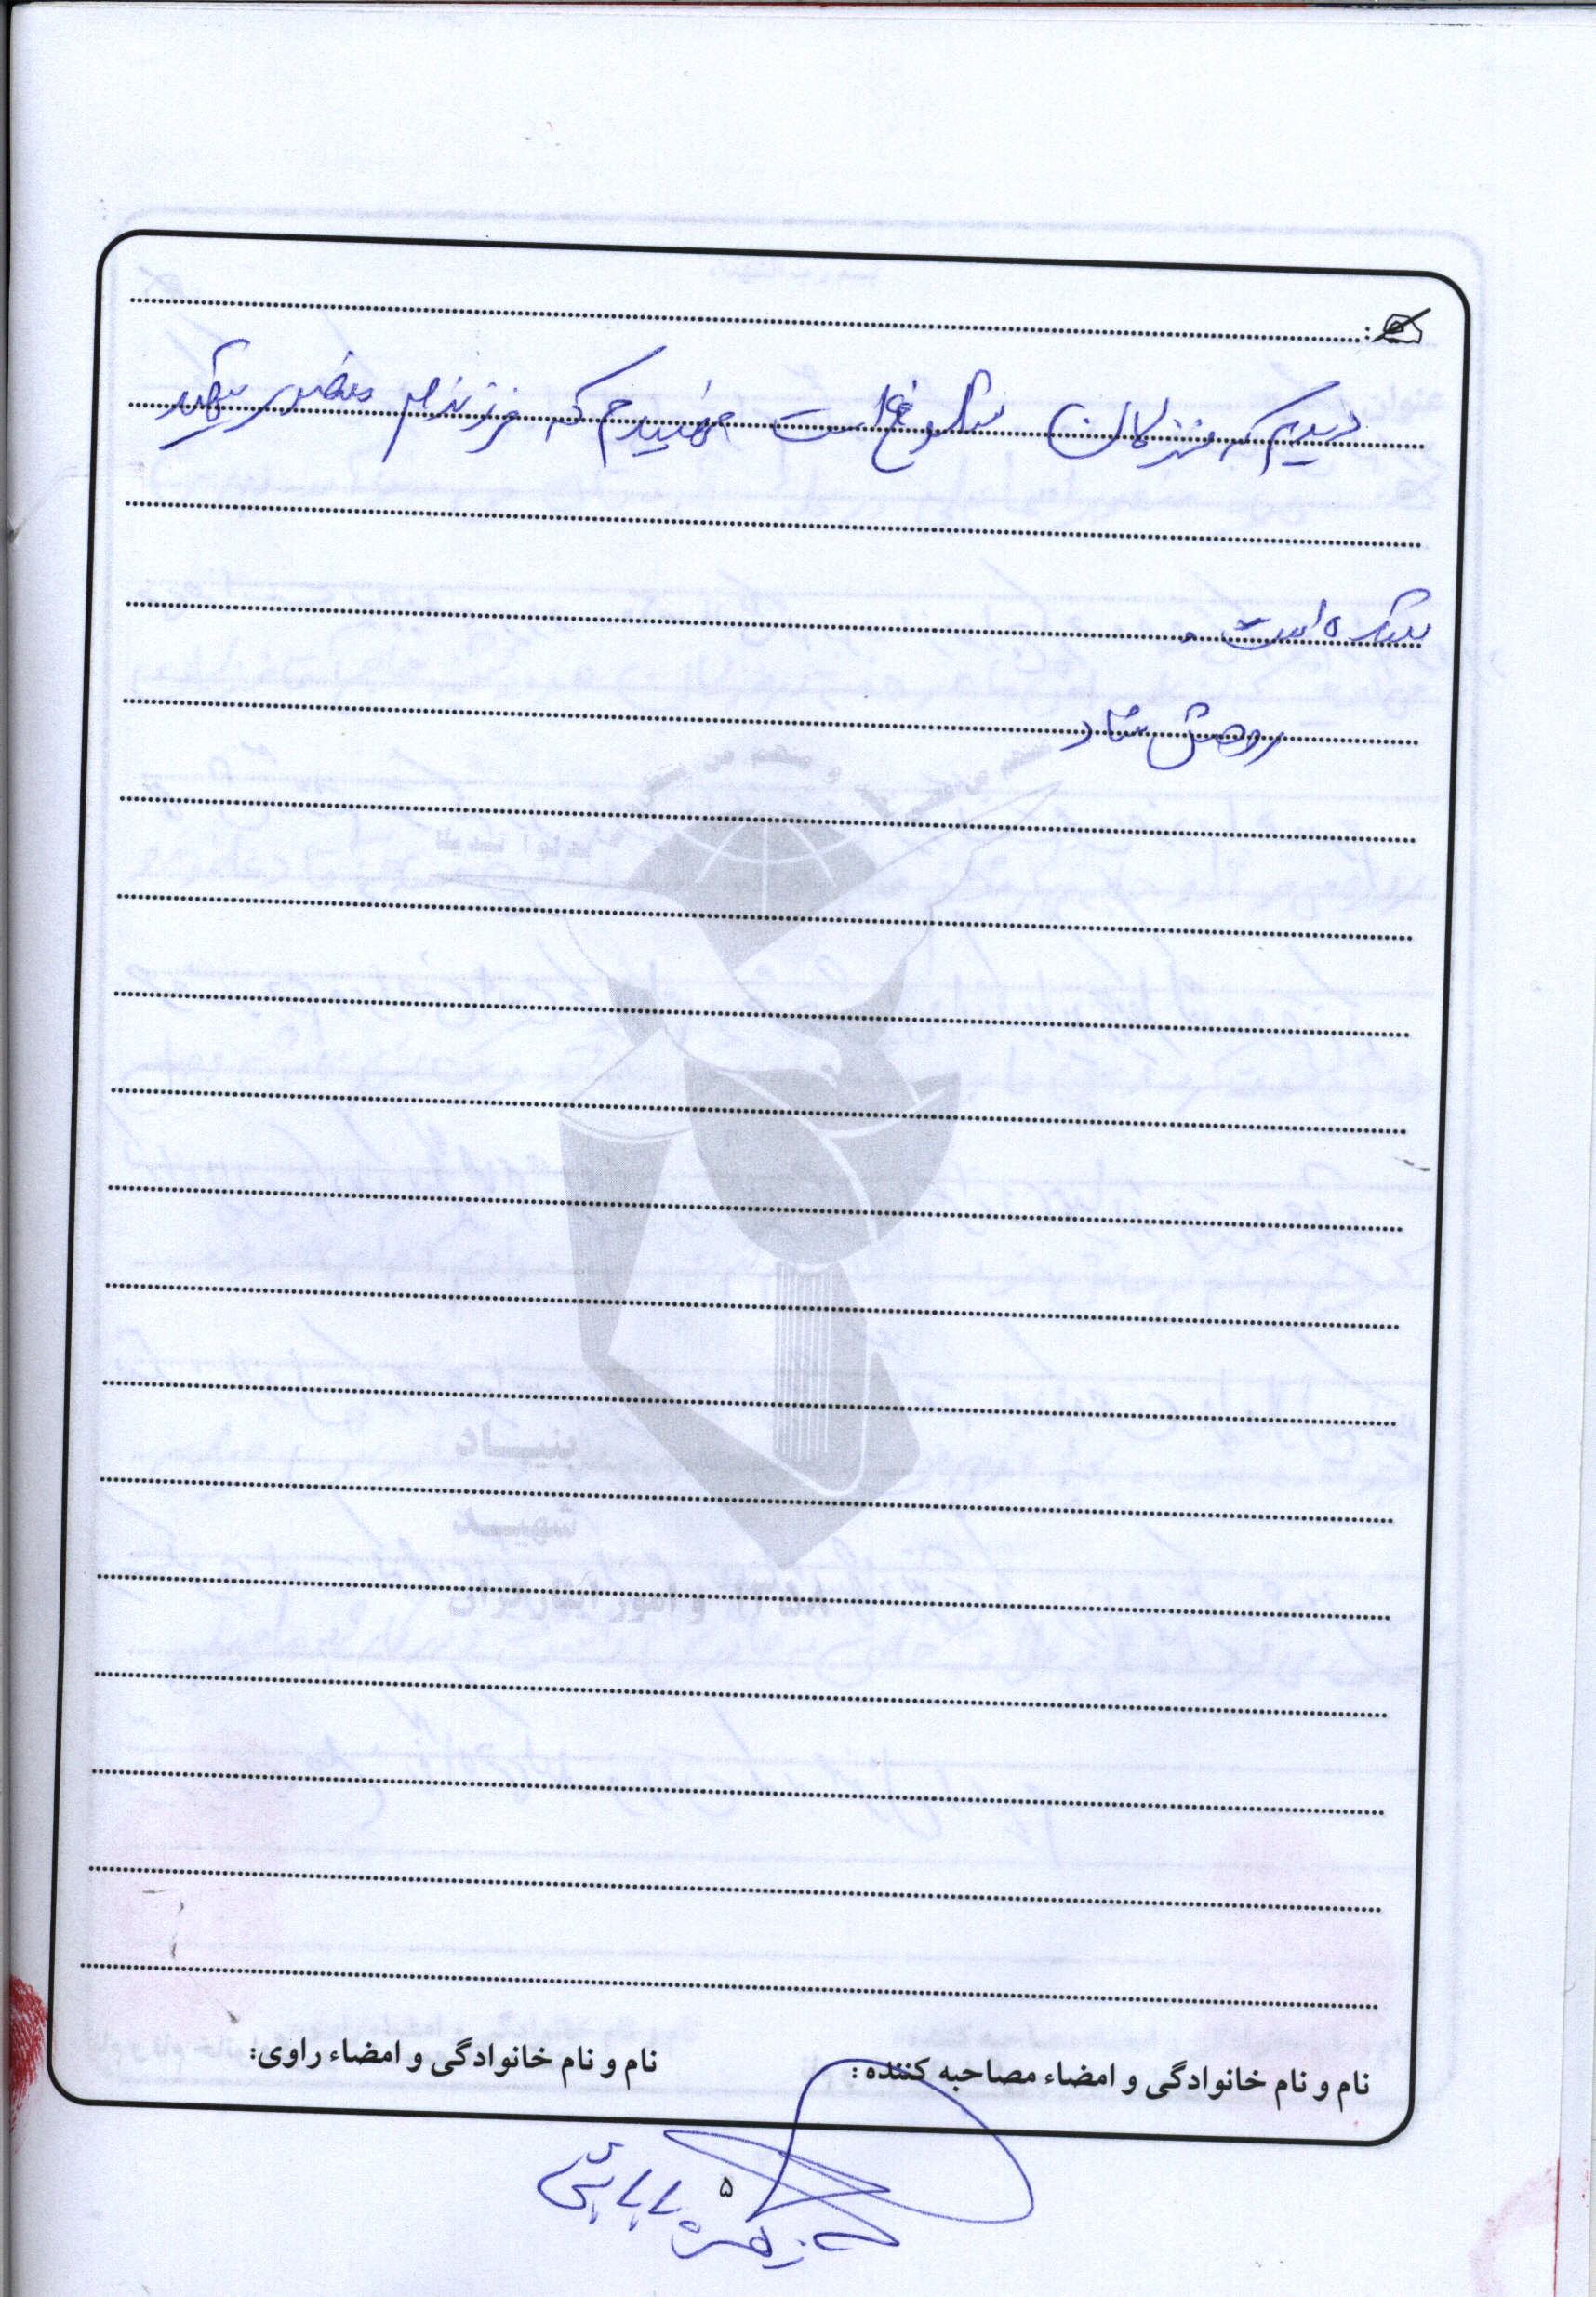 دیدیم که منزلمان شلوغ است فهمیدم که فرزندم منصور شهید
شده است.
روحش شاد
بنیاد
شهید
نام و نام خانوادگی و امضاء مصاحبه کننده:
نام و نام خانوادگی و امضاء راوی:
۵
زهره بابائی